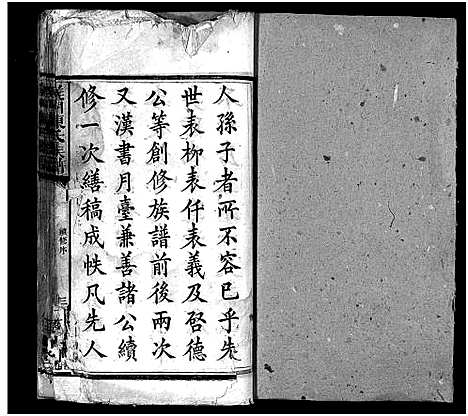 人孫子者所不容已乎先
世表柳表仟表義及啓德
公等創修族譜前後兩次
又漢書月臺兼善諸公續
修一次繕稿成帙凡先人
續修序
三